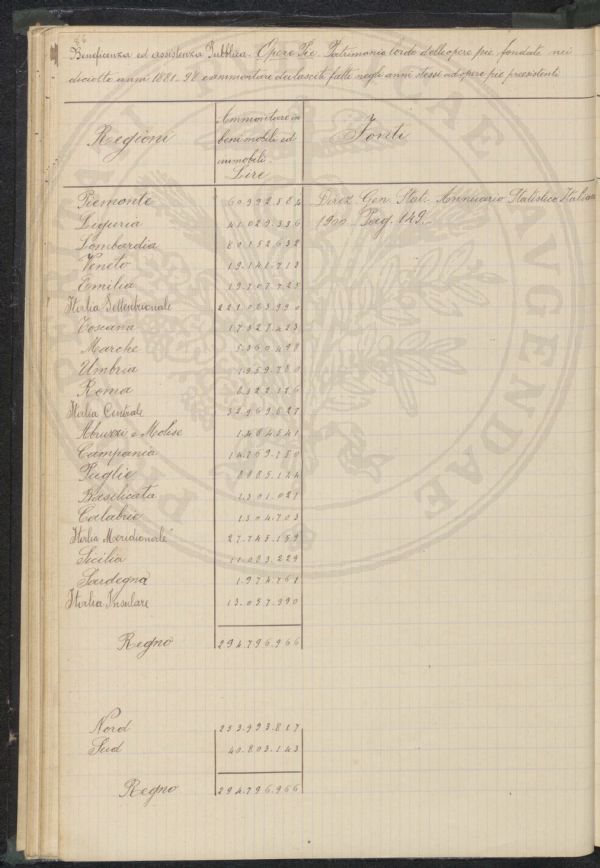 86
Beneficenza ed assistenza Pubblica. Opere Pie. Patrimonio lordo delle opere pie fondate nei
diciotto anni 1881-98 e ammontare dei lasciti fatti negli anni stessi ad opere pie preesistenti
Regioni
Ammontare in
beni mobili ed
immobili
Lire
Fonti
Piemonte 60.992.584 Direz. Gen. Stat. Annuario Statistico Italiano
Liguria 41.029.336 1900. Pag. 149.
Lombardia 80.152.632
Veneto 19.141.713
Emilia 19.707.725
Italia Settentrionale 221.023.990
Toscana 17.327.423
Marche 5.360.498
Umbria 1.959.780
Roma 8.322.126
Italia Centrale 32.969.827
Abruzzi e Molise 1.484.541
Campania 14.769.780
Puglie 8.885.124
Basilicata 1.301.021
Calabrie 1.304.703
Italia Meridionale 27.745.159
Sicilia 11.083.229
Sardegna 1.974.761
Italia Insulare 13.057.990
Regno 294.796.966
Nord 253.993.817
Sud 40.803.143
Regno 294.796.966
PRO AUGENDAE